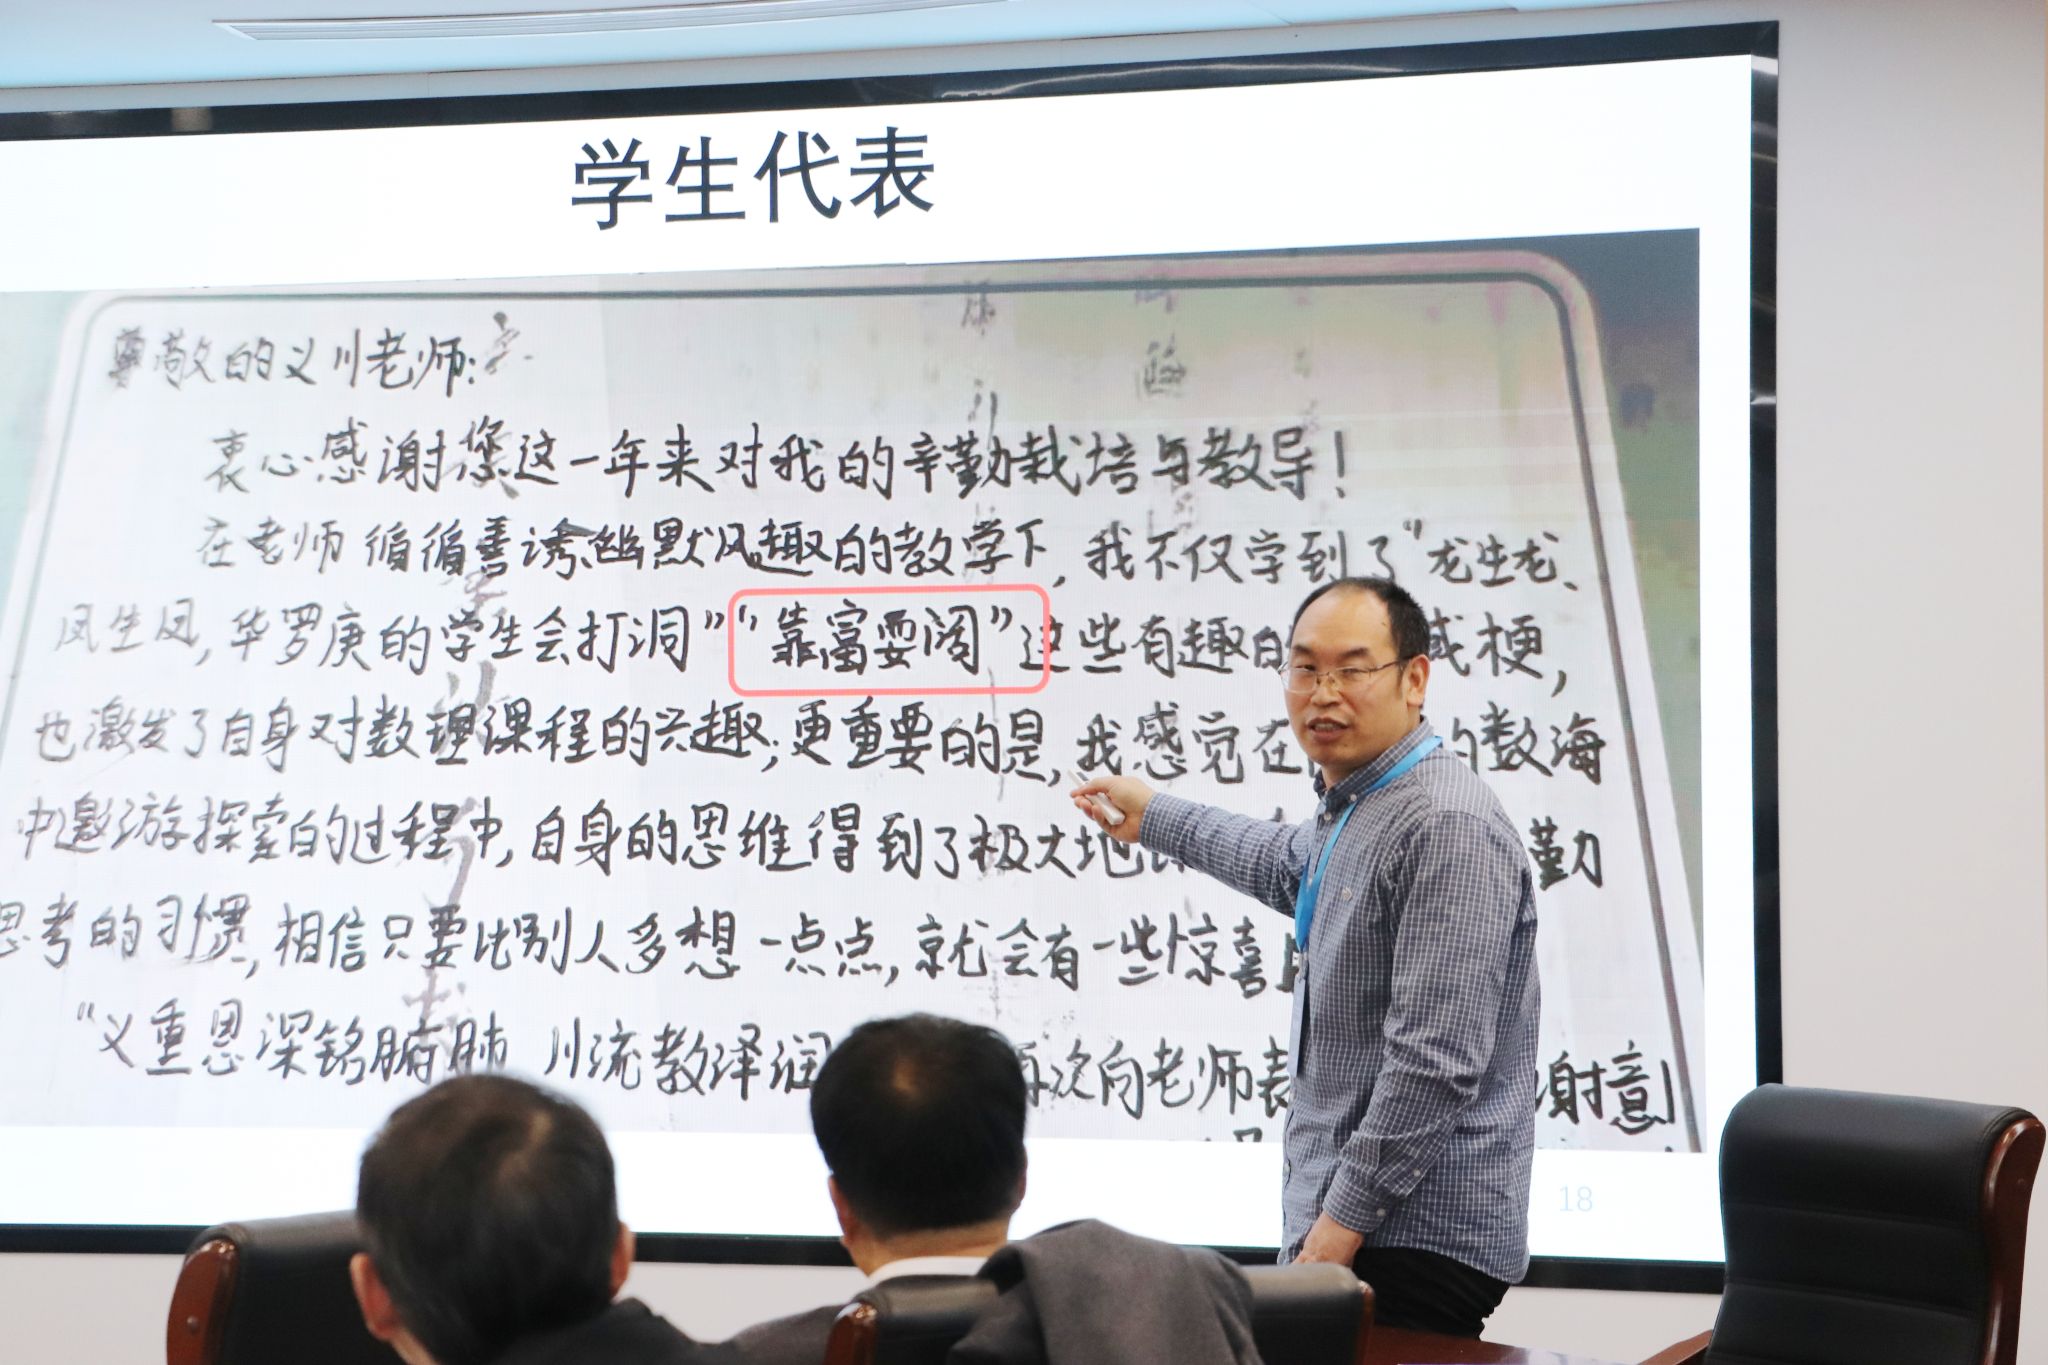 学生代表
尊敬的义川老师:
衷心感谢您这一年来对我的辛勤栽培与教导！
在老师循循善诱幽默风趣的教学下，我不仅学到了“龙生龙、
凤生凤，华罗庚的学生会打洞”“靠富耍阔”这些有趣的 感梗，
也激发了自身对数理课程的兴趣；更重要的是，我感觉在 的数海
中遨游探索的过程中，自身的思维得到了极大地 勤
思考的习惯，相信只要比别人多想一点点，就会有一些惊喜
“义重恩深铭腑肺 川流教泽润 再次向老师表 谢意！
18